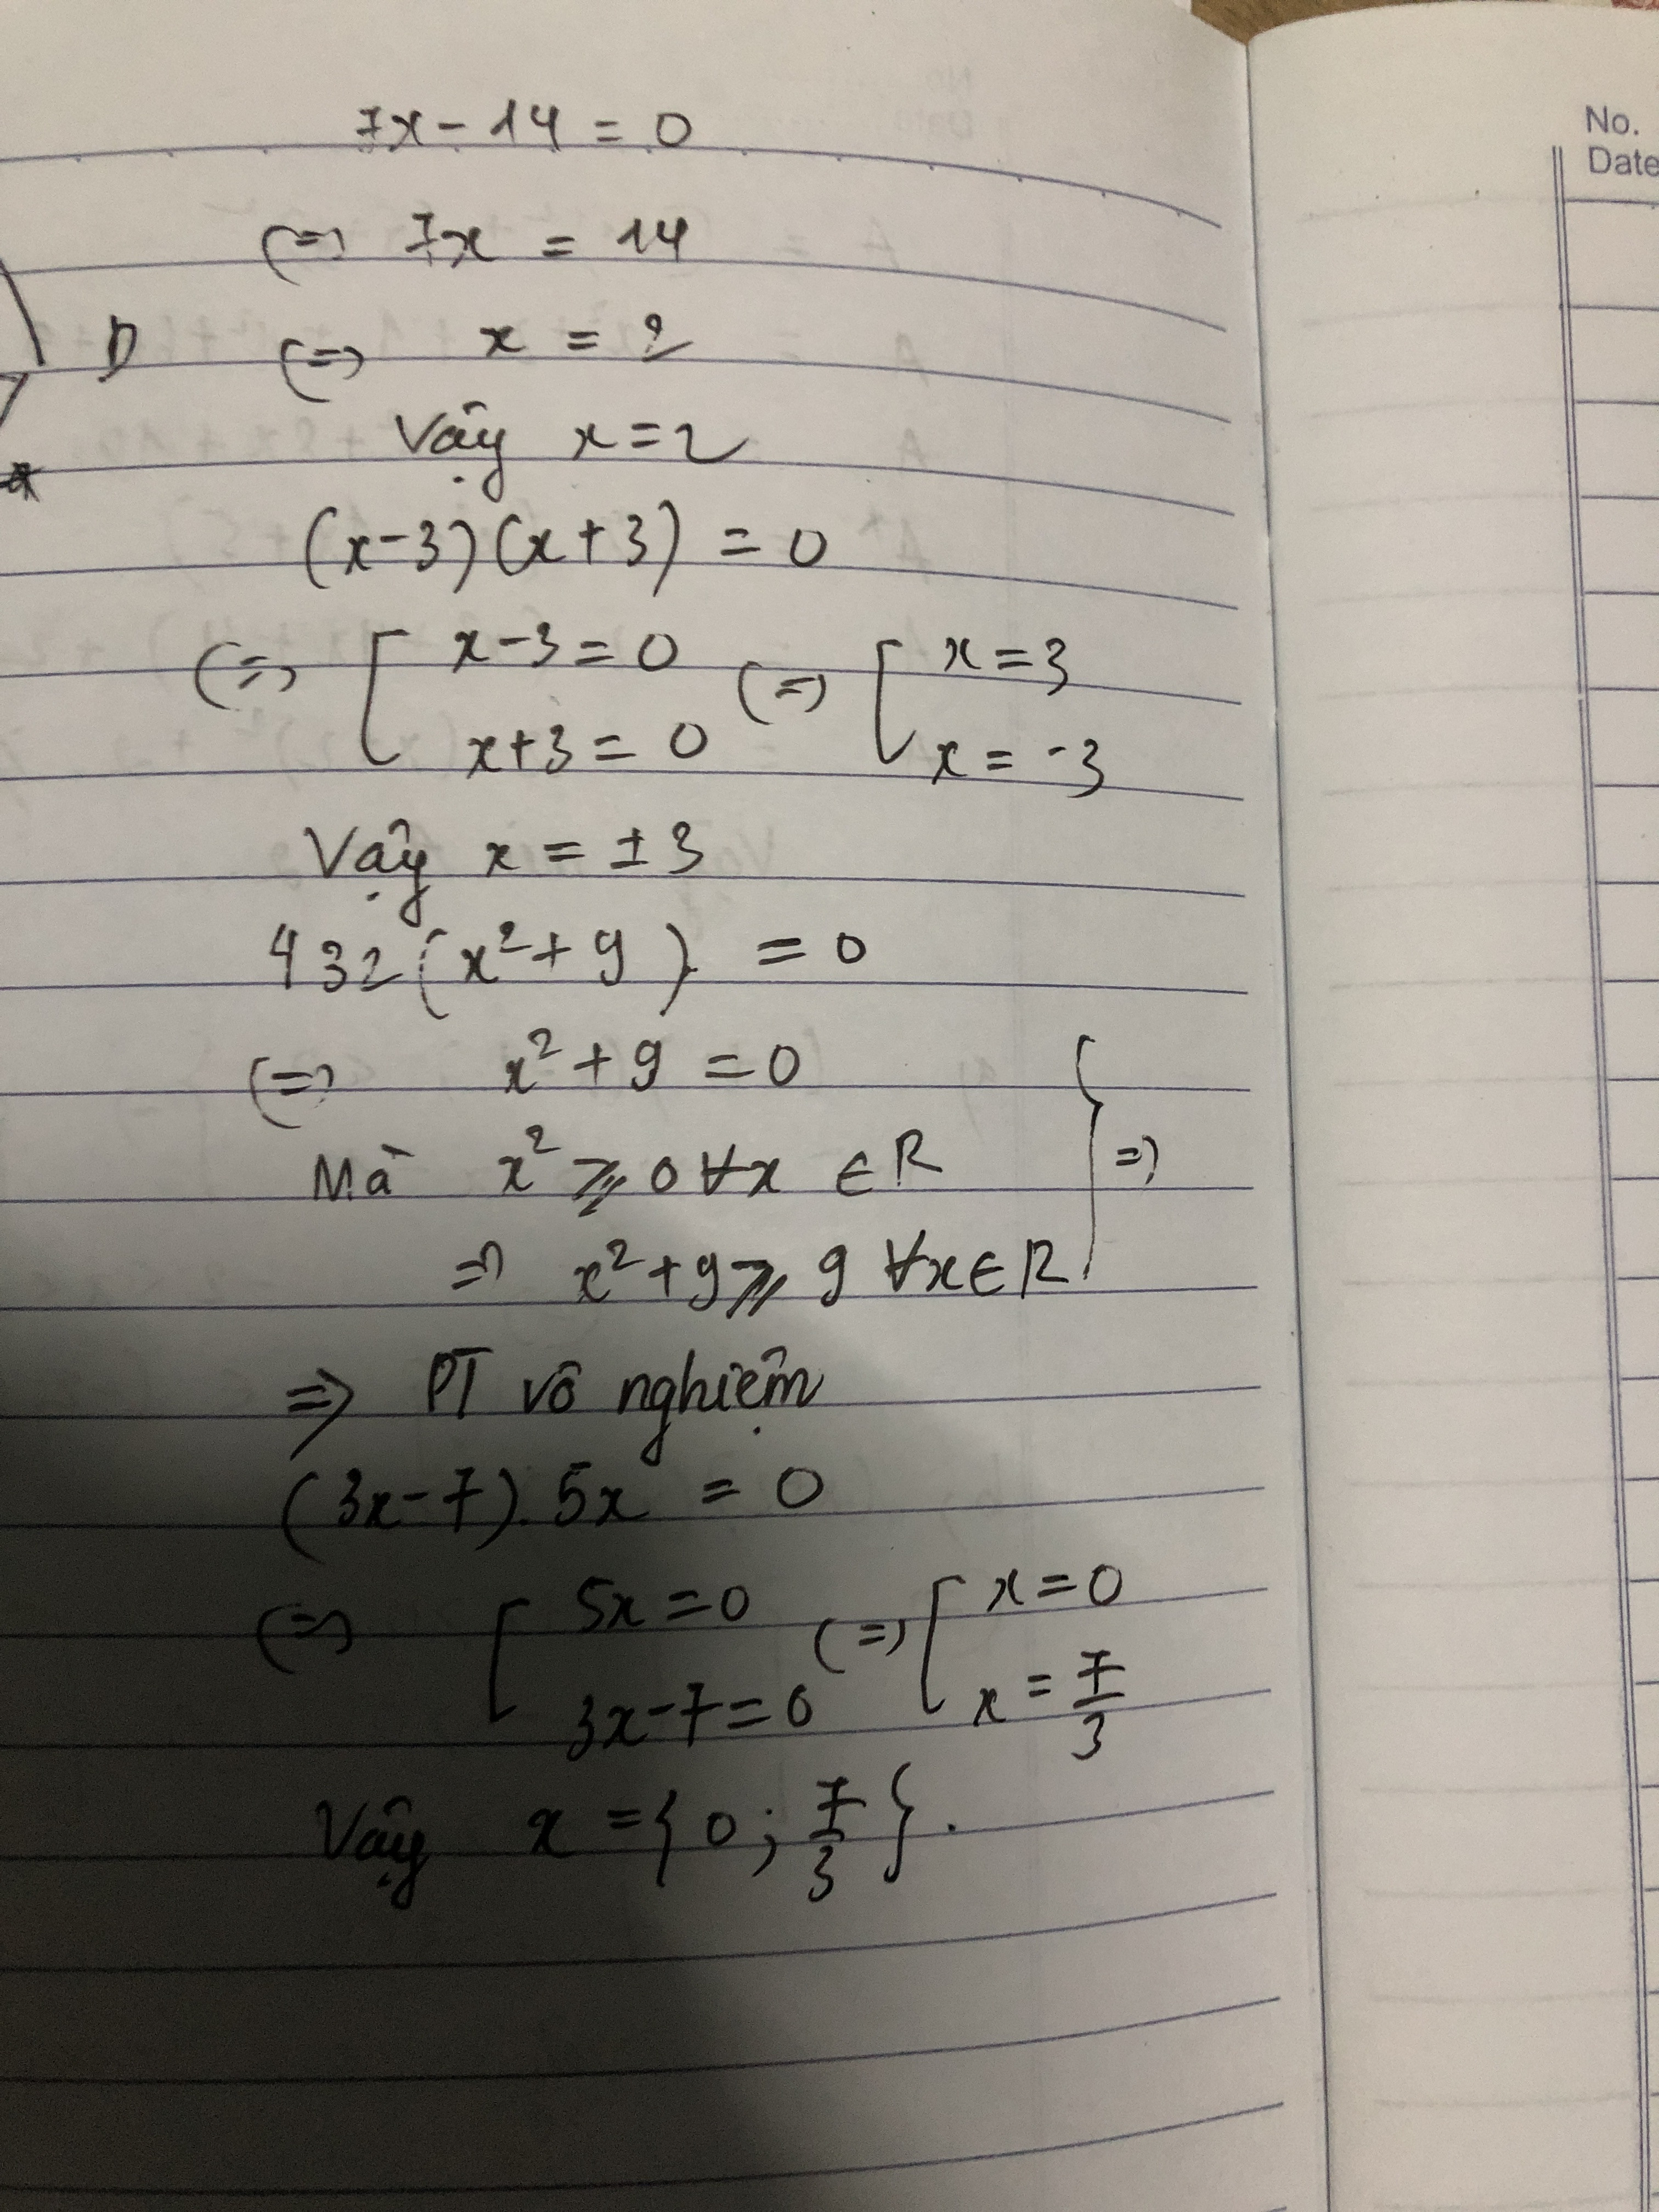 No.
Date
7x - 14 = 0
(=) 7x = 14
D (=) x = 2
Vậy x = 2
(x-3)(x+3) = 0
(=) [ x-3=0 (=) [ x=3
x+3=0 x=-3
Vậy x = ±3
432(x²+9) = 0
(=) x²+9 = 0
Mà x² ⩾ 0 ∀x ∈ R } =)
=) x²+9 ⩾ 9 ∀x∈R
=> PT vô nghiệm
(3x-7).5x = 0
(=) [ 5x=0 (=) [ x=0
3x-7=0 x = 7/3
Vậy x = {0; 7/3}.